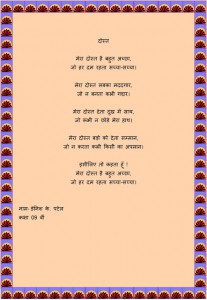 दोस्त
मेरा दोस्त है बहुत अच्छा,
जो हर दम रहता सच्चा-सच्चा।
मेरा दोस्त सबका मददगार,
जो न बनता कभी गद्दार।
मेरा दोस्त देता दुख में साथ,
जो कभी न छोड़े मेरा हाथ।
मेरा दोस्त बड़ों को देता सम्मान,
जो न करता कभी किसी का अपमान।
इसीलिए तो कहता हूँ !
मेरा दोस्त है बहुत अच्छा,
जो हर दम रहता सच्चा-सच्चा।
नाम के. पटेल
कक्षा 09 वीं